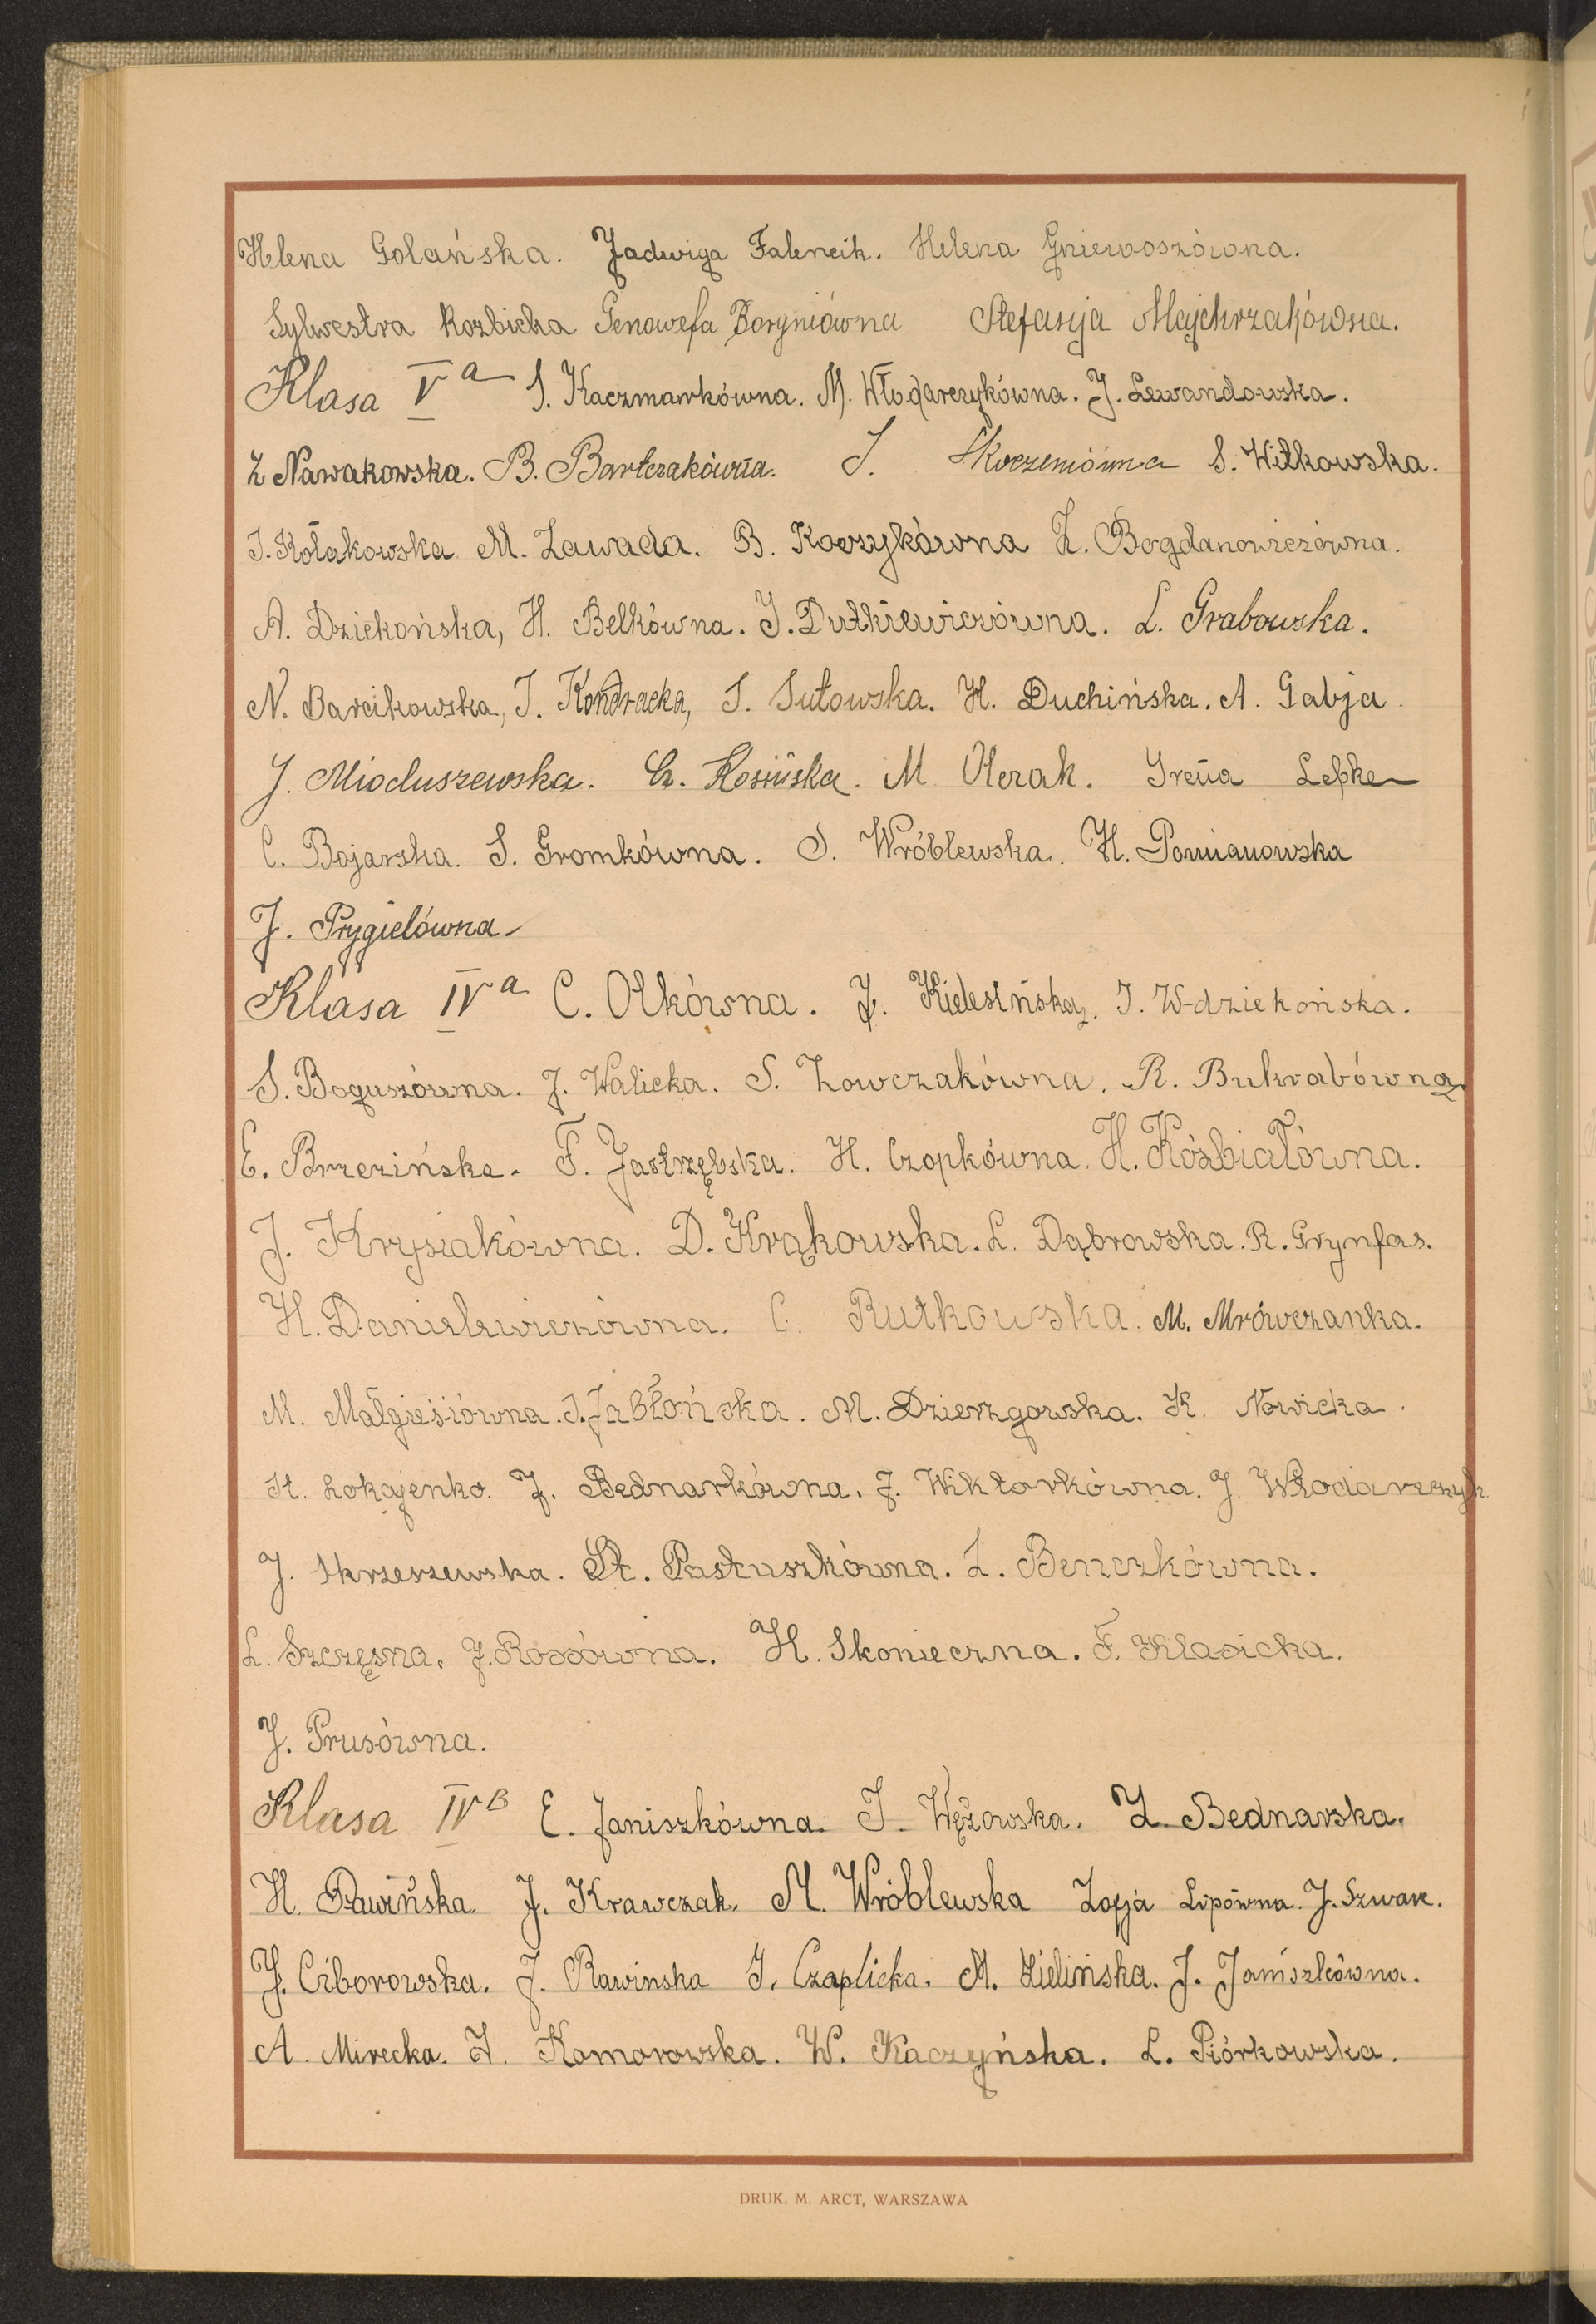 Helena Golańska. Jadwiga Falencik. Helena Gniewoszówna.
Sylwestra Rozbicka Genowefa Boryniówna Stefanja Majchrzakówna.
Klasa Va S. Kaczmarkówna. M. Włodarczykówna. J. Lewandowska.
Z Nawakowska. B. Bartczakówna. J. Skoczeniówna S. Witkowska.
J. Kołakowska M. Zawada. B. Koczykówna Z. Bogdanowiczówna.
A. Dziekońska, H. Belkówna. J. Dutkiewiczówna. L. Grabowska.
N. Barcikowska, J. Kondracka, S. Sutowska. H. Duchińska. A. Gabja.
J. Mioduszewska. Cz. Kosińska. M Olczak. Irena Lepke
C. Bojarska. S. Gromkówna. S. Wróblewska. H. Pomianowska
J. Prygielówna
Klasa IVa C. Olkówna. J. Kielesińska. J. Wdziekońska.
S. Boguszówna. J. Walicka. S. Zowczakówna. R. Bukrabówna
E. Brzezińska. F. Jastrzębska. H. Czopkówna. H. Kózbiałówna.
J. Krysiakówna. D. Krąkowska. L. Dąbrowska. R. Grynfas.
H. Danielewiczówna. C. Rutkowska. M. Mrówczanka.
M. Małgiesiówna. J. Jabłońska. M. Dzierzgowska. K. Nowicka.
St. Lokajenko. J. Bednarkówna. J. Wiktorkówna. J. Włodarczyk.
J. Skrzeszewska. St. Pastuszkówna. Z. Benczkówna.
L. Szczęsna. J. Rossówna. H. Skonieczna. F. Klasicka.
J. Prusówna.
Klasa IVB E. Janiszkówna. J. Wężowska. Z. Bednarska.
H. Rawińska. J. Krawczak. M. Wróblewska Zofja Lipówna. J. Szwarc.
J. Ciborowska. J. Rawinska J. Czaplicka. M. Zielińska. J. Janiszkówna.
A. Mirecka. J. Komorowska. W. Kaczyńska. L. Piórkowska.
DRUK. M. ARCT, WARSZAWA